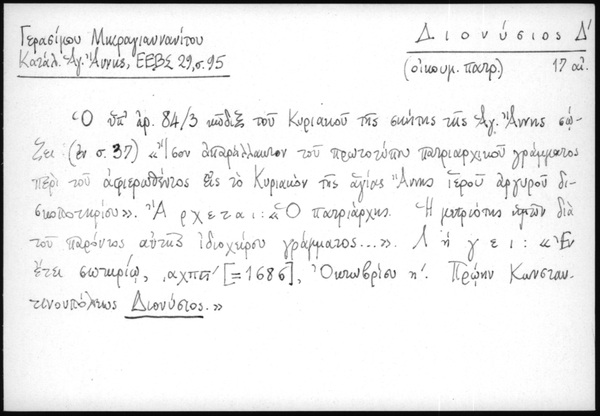 Γερασίμου Μικραγιαννανίτου
Κατάλ. Ἁγ. Ἄννης, ΕΕΒΣ 29, σ. 95
Διονύσιος Δ'
(οἰκουμ. πατρ.) 17 αἰ.
Ὁ ὑπ' ἀρ. 84/3 κῶδιξ τοῦ Κυριακοῦ τῆς σκήτης τῆς Ἁγ. Ἄννης σῴ-
ζει (ἐν σ. 37) «Ἴσον ἀπαράλλακτον τοῦ πρωτοτύπου πατριαρχικοῦ γράμματος
περὶ τοῦ ἀφιερωθέντος εἰς τὸ Κυριακὸν τῆς ἁγίας Ἄννης ἱεροῦ ἀργυροῦ δι-
σκοποτηρίου». Ἄρχεται: «Ὁ πατριάρχης. Ἡ μετριότης ἡμῶν διὰ
τοῦ παρόντος αὐτῆς ἰδιοχήρου γράμματος...». Λήγει: «Ἐν
ἔτει σωτηρίῳ, ͵αχπϛ' [=1686], Ὀκτωβρίου η'. Πρῴην Κωνσταν-
τινουπόλεως Διονύσιος.»